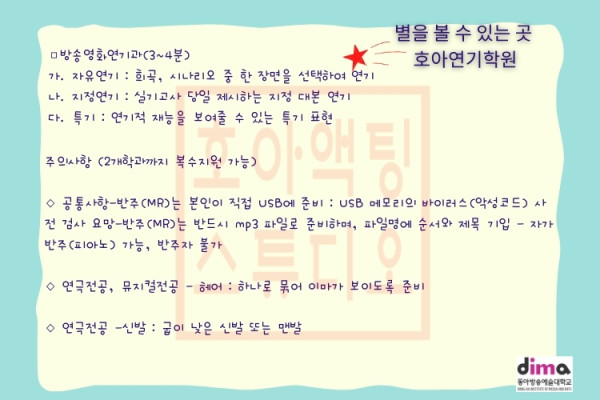 별을 볼 수 있는 곳
호아연기학원
□방송영화연기과(3~4분)
가. 자유연기 : 희곡, 시나리오 중 한 장면을 선택하여 연기
나. 지정연기 : 실기고사 당일 제시하는 지정 대본 연기
다. 특기 : 연기적 재능을 보여줄 수 있는 특기 표현
주의사항 (2개학과까지 복수지원 가능)
◇ 공통사항-반주(MR)는 본인이 직접 USB에 준비 : USB 메모리의 바이러스(악성코드) 사
전 검사 요망-반주(MR)는 반드시 mp3 파일로 준비하며, 파일명에 순서와 제목 기입 - 자가
반주(피아노) 가능, 반주자 불가
◇ 연극전공, 뮤지컬전공 - 헤어 : 하나로 묶어 이마가 보이도록 준비
◇ 연극전공 -신발 : 굽이 낮은 신발 또는 맨발
호아액팅
스튜디오
dima
동아방송예술대학교